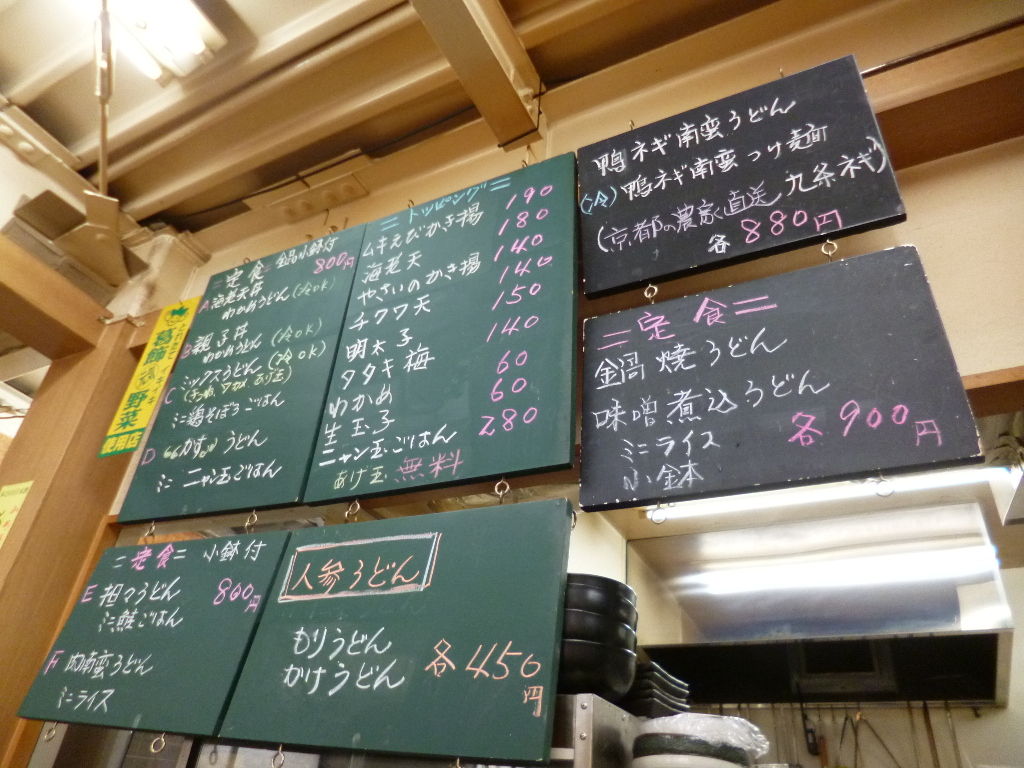 = 定食= 鍋小鉢付
800円
A 海老天丼
わかめうどん(冷OK)
B 親子丼
わかめうどん(冷OK)
C ミックスうどん(冷OK)
ミニ鶏そぼろごはん
D "かす"うどん
ミニ ニャン玉ごはん
= トッピング =
ムキえびかき揚 190
海老天 180
やさいのかき揚 140
チクワ天 140
明太子 150
タタキ梅 140
わかめ 60
生玉子 60
ニャン玉ごはん 280
あげ玉 無料
鴨ネギ南蛮うどん
(冷)鴨ネギ南蛮つけ麺
(京都の農家直送 九条ネギ)
各 880円
= 定食 =
鍋焼うどん
味噌煮込うどん
ミニライス
小鉢
各900円
= 定食= 小鉢付
E 担々うどん 800円
ミニ鮭ごはん
F 肉南蛮うどん
ミニライス
人参うどん
もりうどん
かけうどん
各450円
野菜
使用店